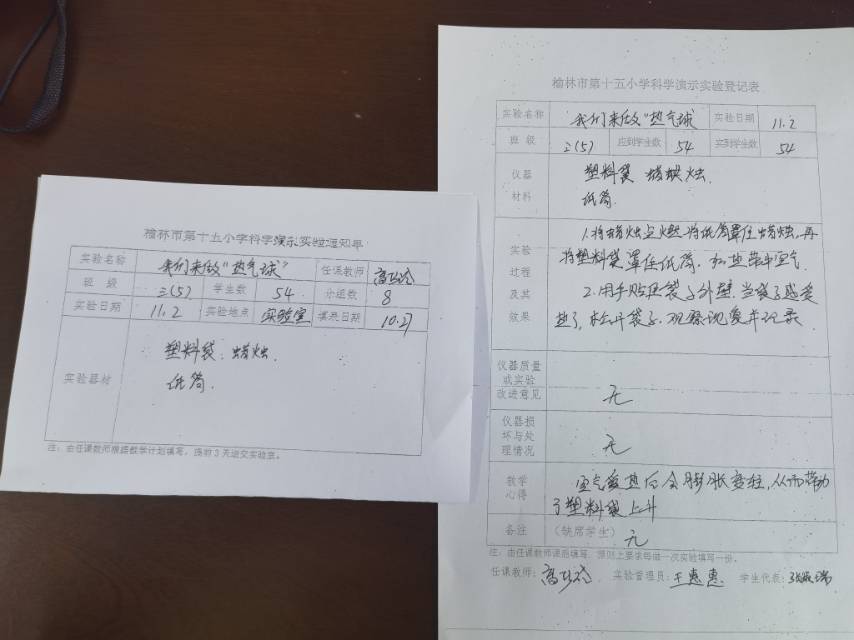 榆林市第十五小学科学演示实验通知单
实验名称 我们来做"热气球" 任课教师
班级 三(5) 学生数 54 分组数 8
实验日期 11.2 实验地点 实验室 填表日期 10.27
实验器材 塑料袋 蜡烛
纸筒
注：由任课教师根据教学计划填写，提前3天送交实验室。
榆林市第十五小学科学演示实验登记表
实验名称 我们来做"热气球 实验日期 11.2
班级 三(5) 应到学生数 54 实到学生数 54
仪器材料 塑料袋 蜡烛
纸筒
实验过程及其效果 1.将蜡烛点燃 将纸筒罩住蜡烛，再
将塑料袋罩住纸筒，加热袋中空气
2.用手贴近袋子外壁，当袋子感觉
热了，松开袋子，观察现象并记录
仪器质量或实验改进意见 无
仪器损坏与处理情况 无
教学心得 空气受热后会膨胀变轻，从而带动
了塑料袋上升
备注 (缺席学生) 无
注：由任课教师课后填写，原则上要求每做一次实验填写一份。
任课教师： 实验管理员：王惠惠 学生代表：